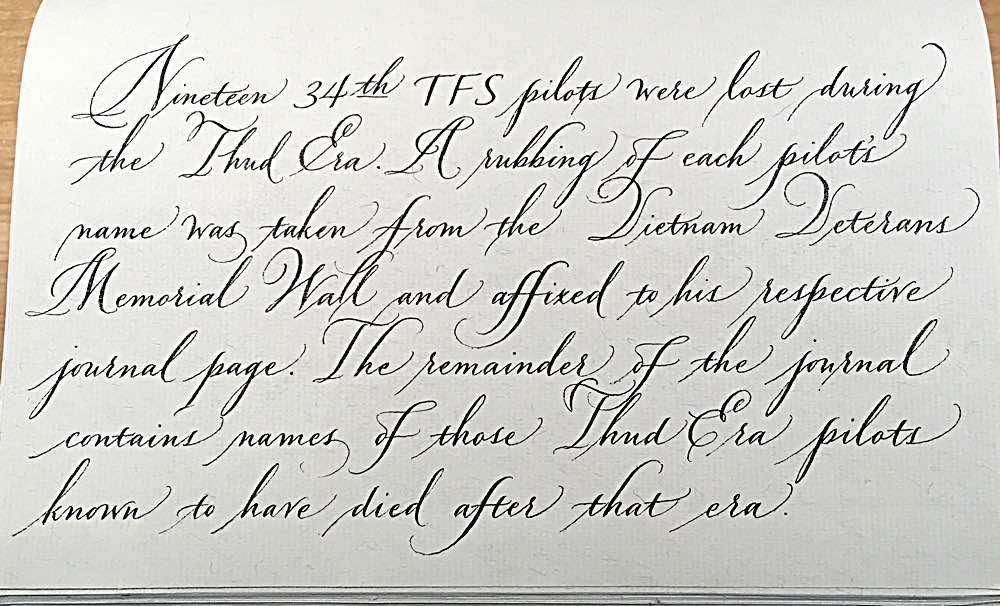 Nineteen 34th TFS pilots were lost during
the Thud Era. A rubbing of each pilot's
name was taken from the Vietnam Veterans
Memorial Wall and affixed to his respective
journal page. The remainder of the journal
contains names of those Thud Era pilots
known to have died after that era.